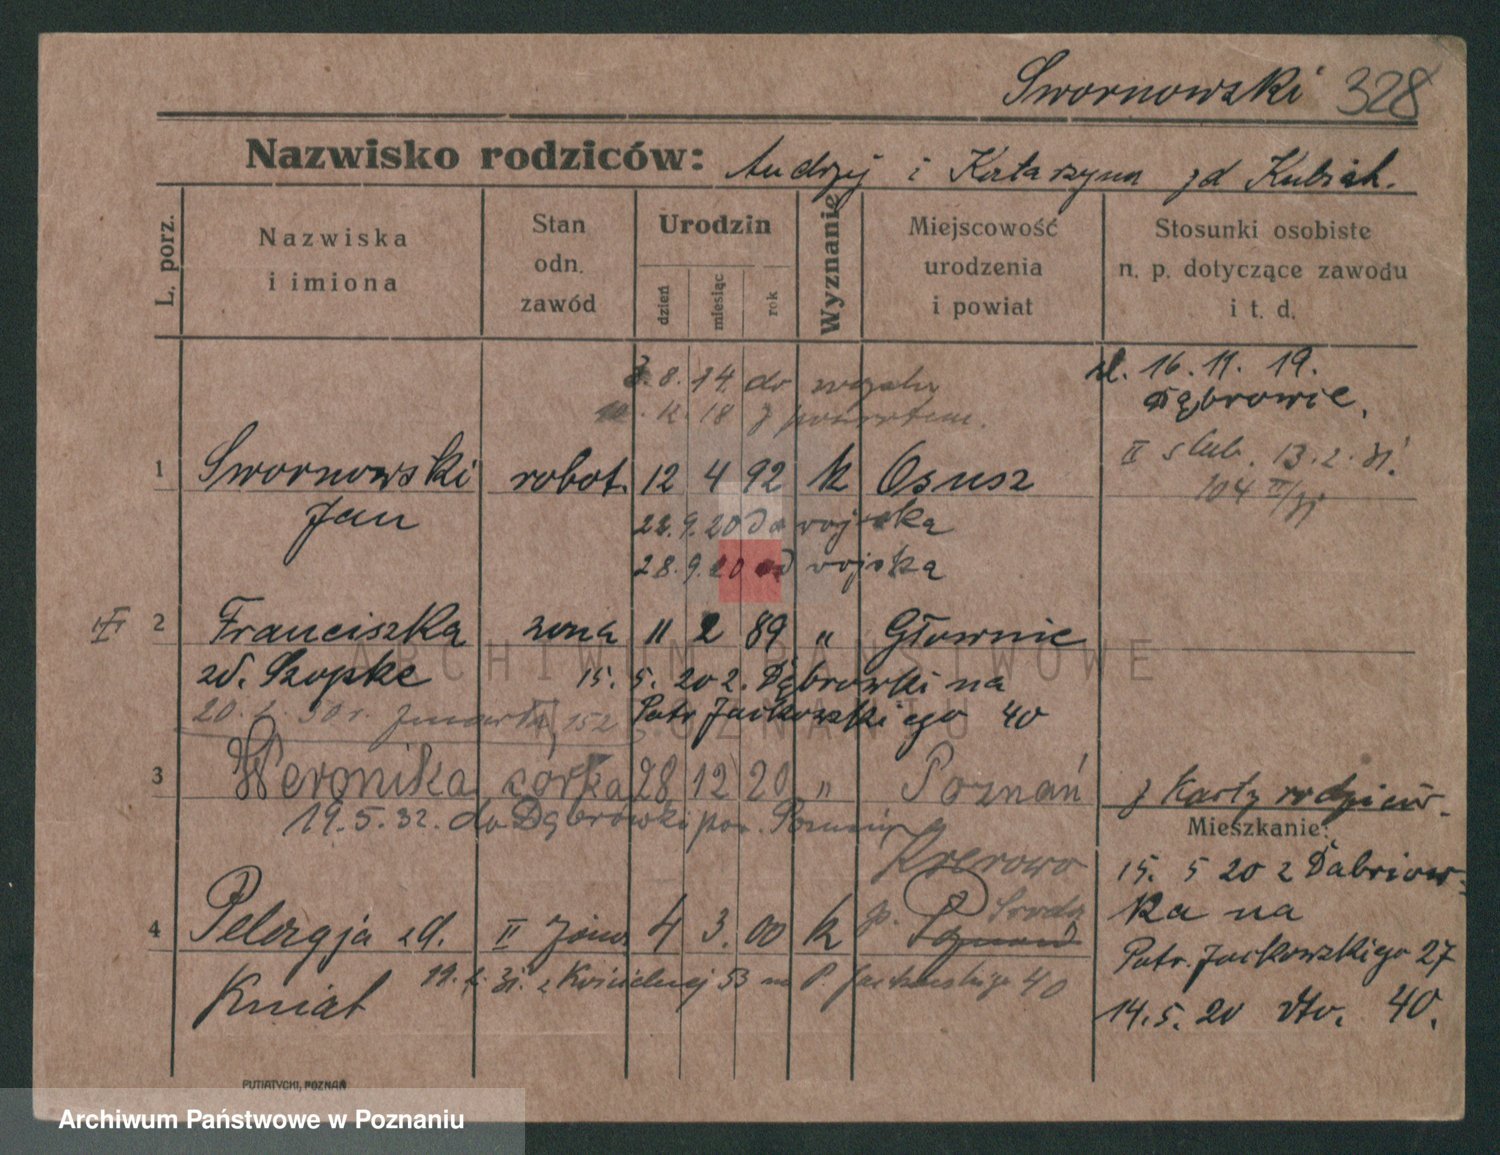 Swornowski 328
Nazwisko rodziców: Andrzej i Katarzyna zd Kubiak.
L. porz.
Nazwiska i imiona
Stan odn. zawód
Urodzin
dzień
miesiąc
rok
Wyznanie
Miejscowość urodzenia i powiat
Stosunki osobiste n. p. dotyczące zawodu i t. d.
8. 14. do
18 z powrotem.
śl. 16. 11. 19.
Dąbrowie.
II ślub. 13. 2. 31.
104
1 Swornowski robot. 12 4 92 k Osusz
Jan
22. 9. 20 do wojska
28. 9. 20 od wojska
2 Franciszka żona 11 2 89 " Głownie
zd. Szopke
15. 5. 20 z. Dąbrowki na
Patr. Jackowskiego 40
20. 30 r. zmarła 152
3 Weronika córka 28 12 20 " Poznań
19. 5. 32. do Dąbrówki pow. Poznań
z Karty rodziców.
Mieszkanie:
15. 5 20 z Dabriow-
ka na
Patr. Jackowskiego 27
14. 5. 20 dto. 40.
Krerowo
p. Środa
4 Pelagja zd. II żona 4 3. 00 k Poznań
Kniat
31. z Kościelnej 53 na P. Jackowskiego 40
PUTIATYCKI, POZNAŃ
ARCHIWUM PAŃSTWOWE
W POZNANIU
Archiwum Państwowe w Poznaniu